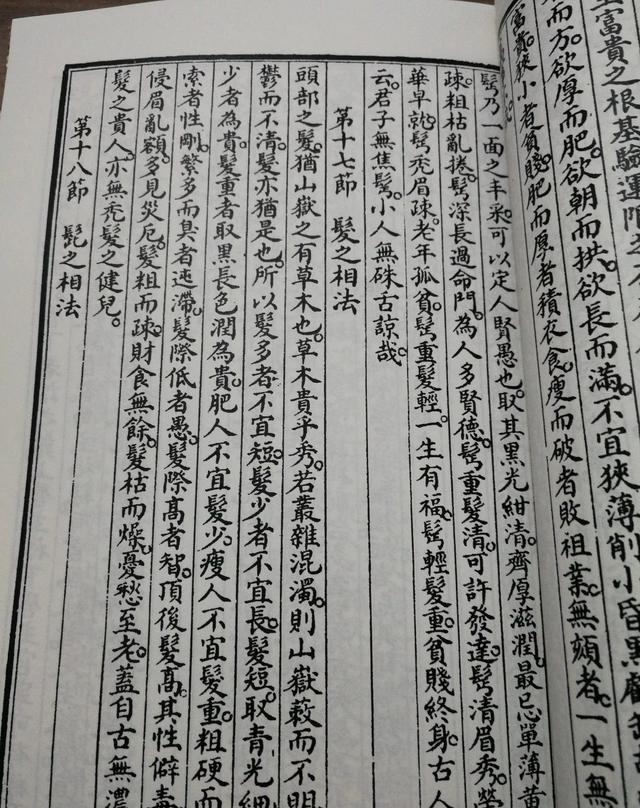 富貴之根基驗運限之
而方欲厚而肥欲朝而拱欲長而滿。不宜狹薄削小昏黑
富貴。狹小者貧賤。肥而厚者積衣食。瘦而破者敗祖業。無頦者。一生無
鬂乃一面之丰采。可以定人賢愚也。取其黑光紺清。齊厚滋潤。最忌單薄黄
疎粗枯亂捲。鬂深長過命門。為人多賢德。鬂重髮清。可許發達。鬂清眉秀。榮
華早就。鬂禿眉疎。老年孤貧。鬂重髮輕。一生有福。鬂輕髮重。貧賤終身。古人
云。君子無焦鬂。小人無硃古諒哉。
第十七節　髮之相法
頭部之髮。猶山嶽之有草木也。草木貴乎秀。若叢雜混濁。則山嶽蔽而不明
鬱而不清。髮亦猶是也。所以髮多者。不宜短。髮少者不宜長。髮短。取青光細
少者為貴。髮重者取黑長色潤為貴。肥人不宜髮少。瘦人不宜髮重。粗硬而
索者性剛。繁多而臭者迍滯。髮際低者愚。髮際高者智。頂後髮高。其性僻毒
侵眉亂額。多見災厄。髮粗而疎。財食無餘。髮枯而燥。憂愁至老。蓋自古無濃
髮之貴人。亦無禿髮之健兒。
第十八節　髭之相法